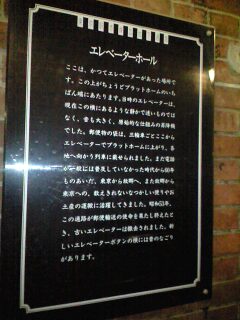 エレベーターホール
ここは、かつてエレベーターがあった場所で
す。この上がちょうどプラットホームのいち
ばん端にあたります。当時のエレベーターは、
現在この横にあるような静かで速いものではな
なく、音も大きく、原始的な仕組みの昇降機
でした。郵便物の袋は、三輪車ごとここから
エレベーターでプラットホームに上がり、各
地へ向かう列車に載せられました。まだ電話
が一般には普及していなかった時代から60年
ものあいだ、東京から故郷へ、また故郷から
東京への、数えきれないなつかしい便りやお
土産の運搬に活躍してきました。昭和53年、
この通路が郵便輸送の使命を果たし終えたと
き、古いエレベーターは撤去されました。新
しいエレベーターボタンの横には昔のなごり
があります。